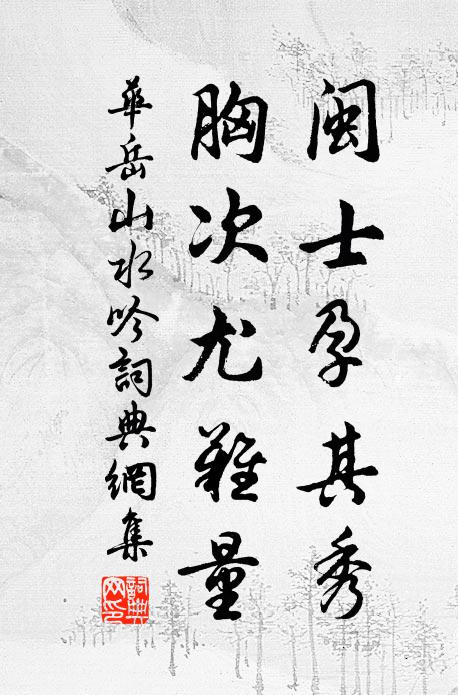 闽士孕其秀
胸次尤難量
華岳山水吟詞典網集
詞典